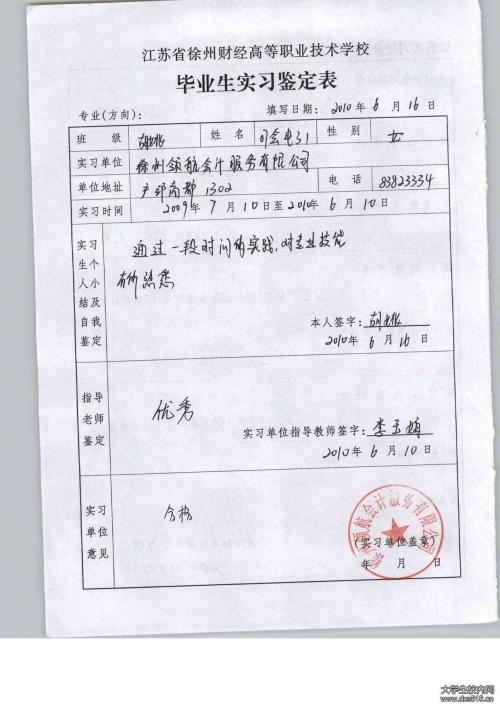 江苏省徐州财经高等职业技术学校
毕业生实习鉴定表
专业(方向): 填写日期: 2010年 6月 16日
班级 姓名 司会电51 性别 女
实习单位 徐州领航会计服务有限公司
单位地址 户部商都 1302 电话 83823334
实习时间 2009年 7月 10日至 2010年 6月 10日
实习生个人小结及自我鉴定
通过一段时间的实践,对专业技能
有所熟悉
本人签字:
2010年 6月 16日
指导老师鉴定
优秀
实习单位指导教师签字: 李玉梅
2010年 6月 10日
实习单位意见
合格
领航会计服务有限公司
(实习单位盖章)
年 月 日
大学生校内网
www.dxs518.cn